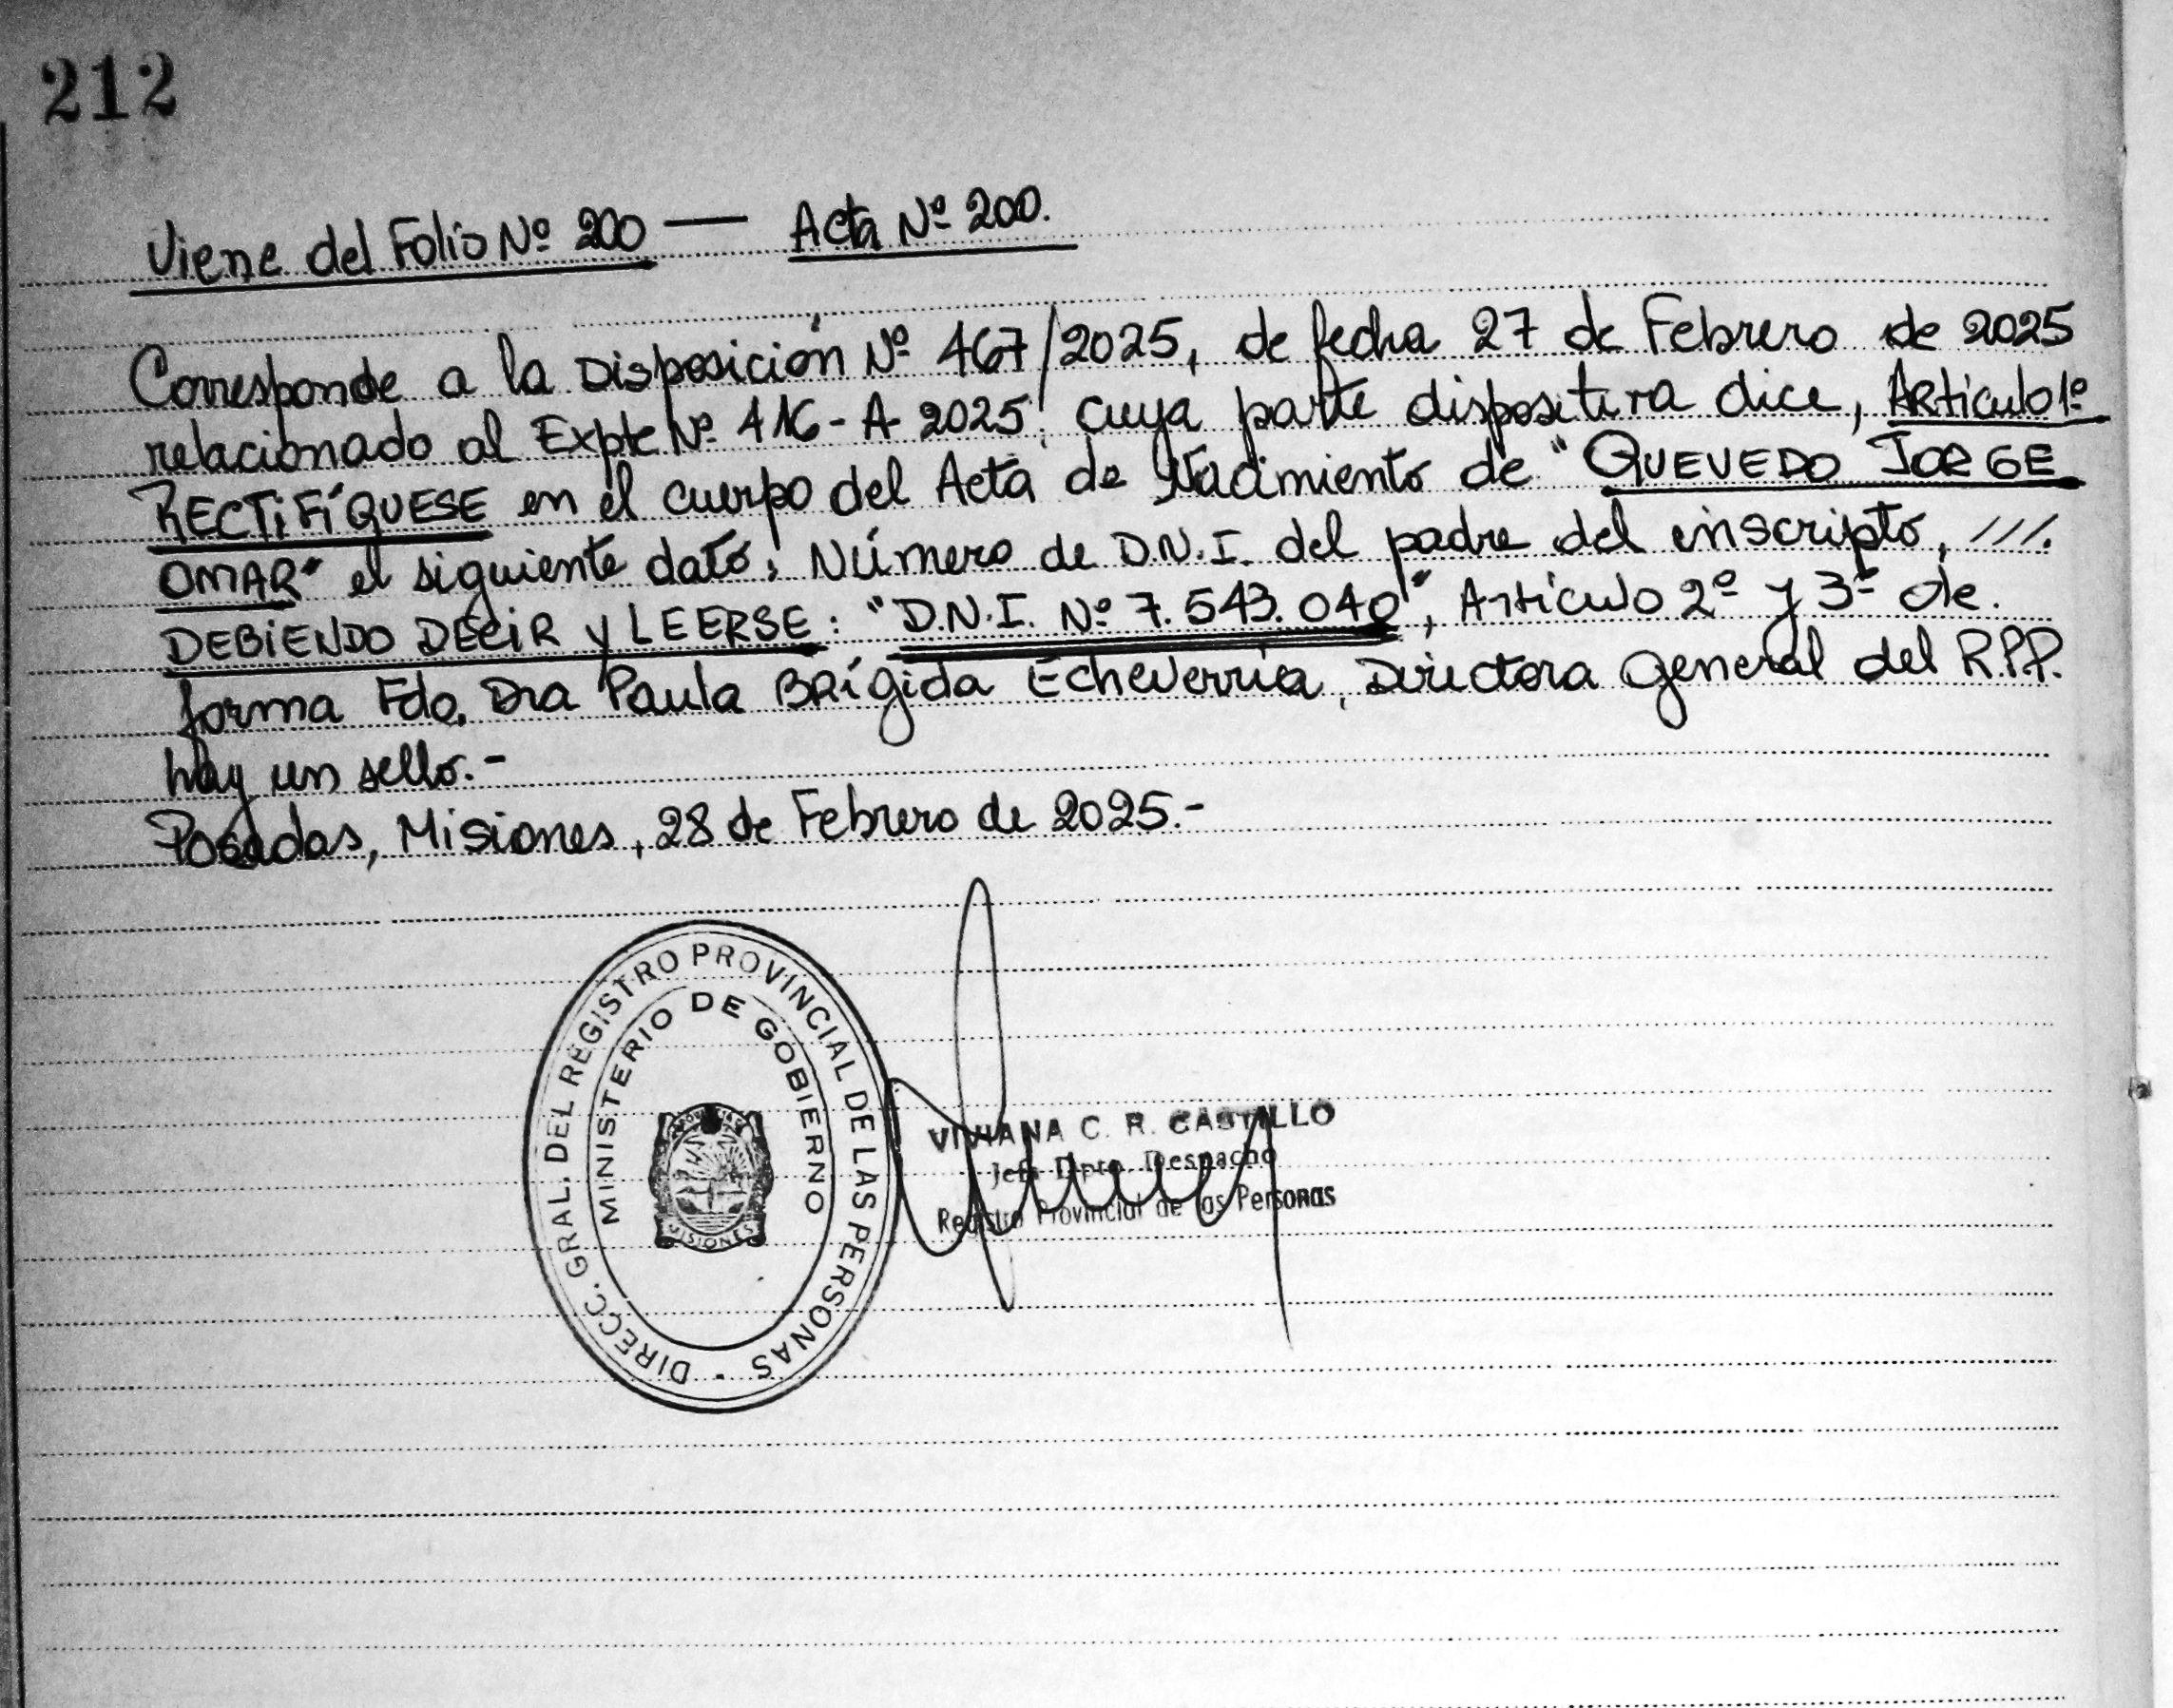 212
Viene del Folio Nº 200 — Acta Nº 200.
Corresponde a la Disposición Nº 467/2025, de fecha 27 de Febrero de 2025
relacionado al Expte Nº 416-A-2025, cuya parte dispositiva dice, Artículo 1º
RECTIFÍQUESE en el cuerpo del Acta de Nacimiento de "QUEVEDO JORGE
OMAR" el siguiente dato: Número de D.N.I. del padre del inscripto, ///.
DEBIENDO DECIR y LEERSE: "D.N.I. Nº 7.543.040", Artículo 2º y 3º de.
forma Fdo. Dra Paula Brígida Echeverría, Directora General del R.P.P.
hay un sello.-
Posadas, Misiones, 28 de Febrero de 2025.-
DIRECC. GRAL. DEL REGISTRO PROVINCIAL DE LAS PERSONAS -
MINISTERIO DE GOBIERNO
PROVINCIA DE
MISIONES
VIVIANA C. R. CASTILLO
Jefa Dpto. Despacho
Registro Provincial de las Personas